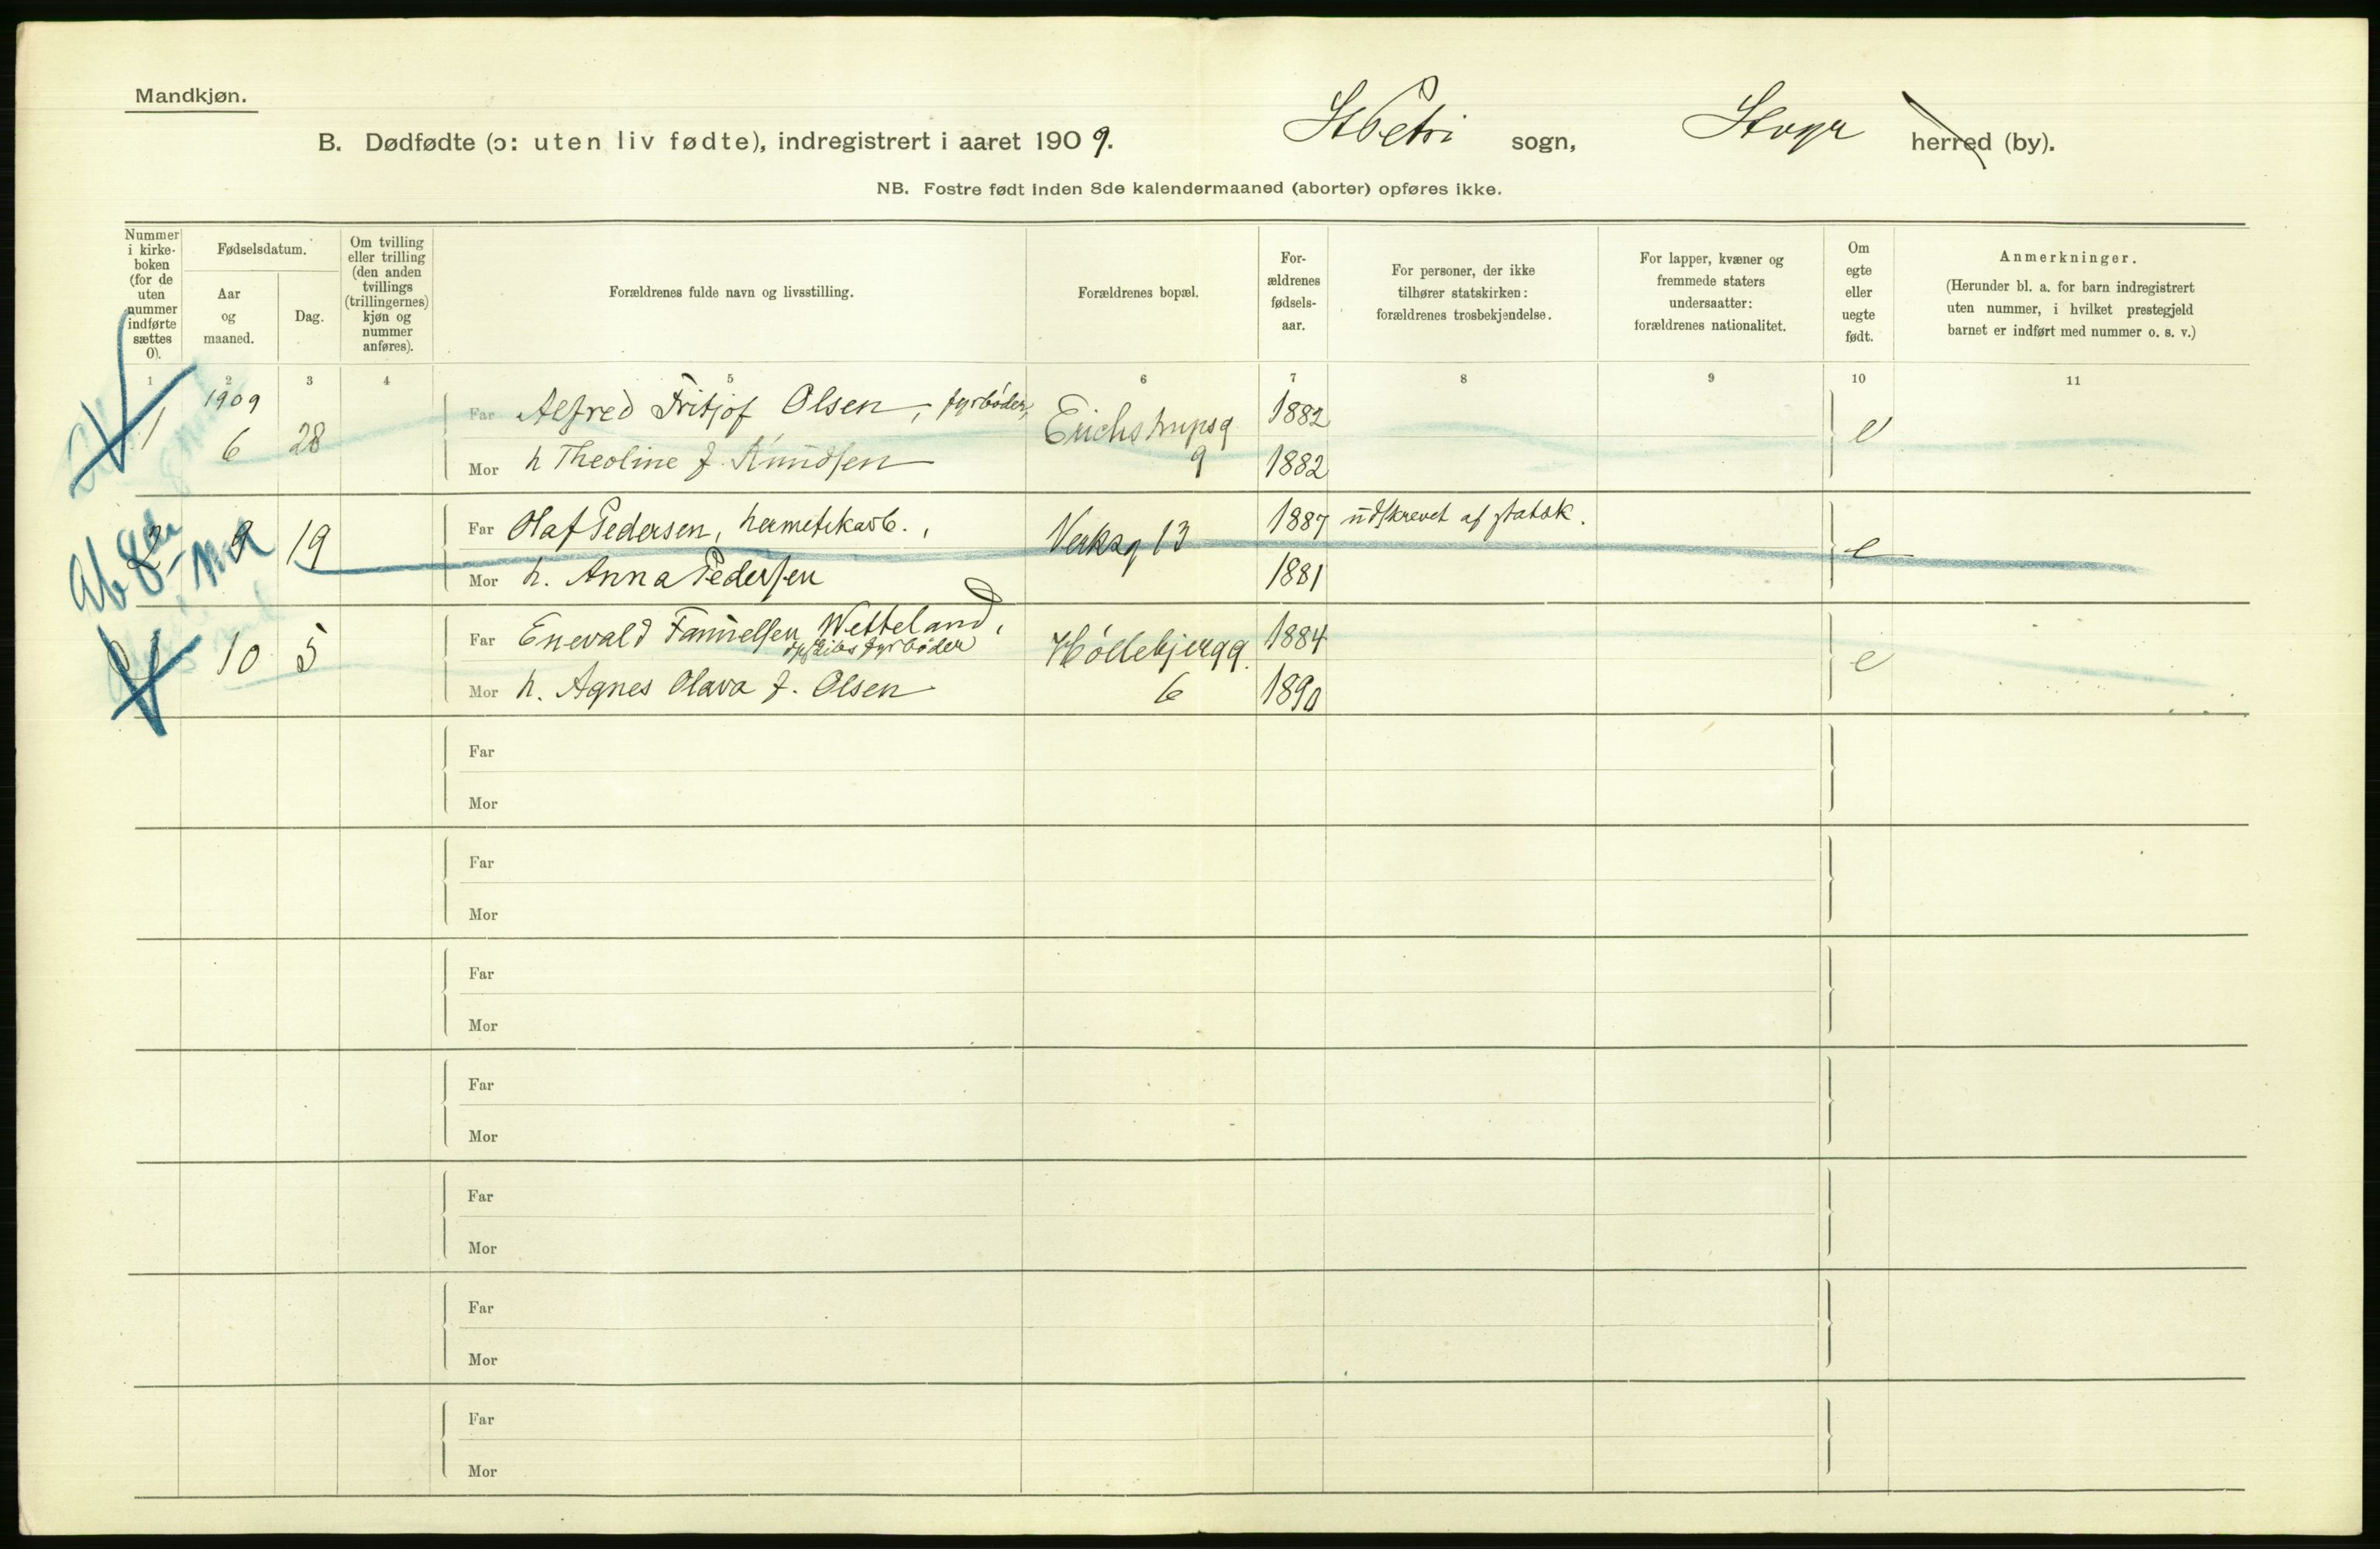 Mandkjøn.
B. Dødfødte (ɔ: uten liv fødte), indregistrert i aaret 1909. St Petri sogn, Stvgr herred (by).
NB. Fostre født inden 8de kalendermaaned (aborter) opføres ikke.
Nummer i kirke-boken (for de uten nummer indførte sættes 0).
Fødselsdatum.
Aar og maaned.
Dag.
Om tvilling eller trilling (den anden tvillings (trillingernes) kjøn og nummer anføres).
Forældrenes fulde navn og livsstilling.
Forældrenes bopæl.
For-ældrenes fødsels-aar.
For personer, der ikke tilhører statskirken: forældrenes trosbekjendelse.
For lapper, kvæner og fremmede staters undersaatter: forældrenes nationalitet.
Om egte eller uegte født.
Anmerkninger.
(Herunder bl. a. for barn indregistrert uten nummer, i hvilket prestegjeld barnet er indført med nummer o. s. v.)
1 2 3 4 5 6 7 8 9 10 11
1909
1 6 28 Far Alfred Fritjof Olsen, fyrbøder, Erichstrupsg 9 1882 e
Mor h Theoline f. Knudsen 1882
Ab 8de md
2 9 19 Far Olaf Pedersen, hermetikarb., Verksg 13 1887 udskrevet af statsk. e
Mor h. Anna Pedersen 1881
10 5 Far Enevald Samuelsen Wetteland, fyrbøder 1884 e
Mor h. Agnes Olava f. Olsen 6 1890
Far
Mor
Far
Mor
Far
Mor
Far
Mor
Far
Mor
Far
Mor
Far
Mor